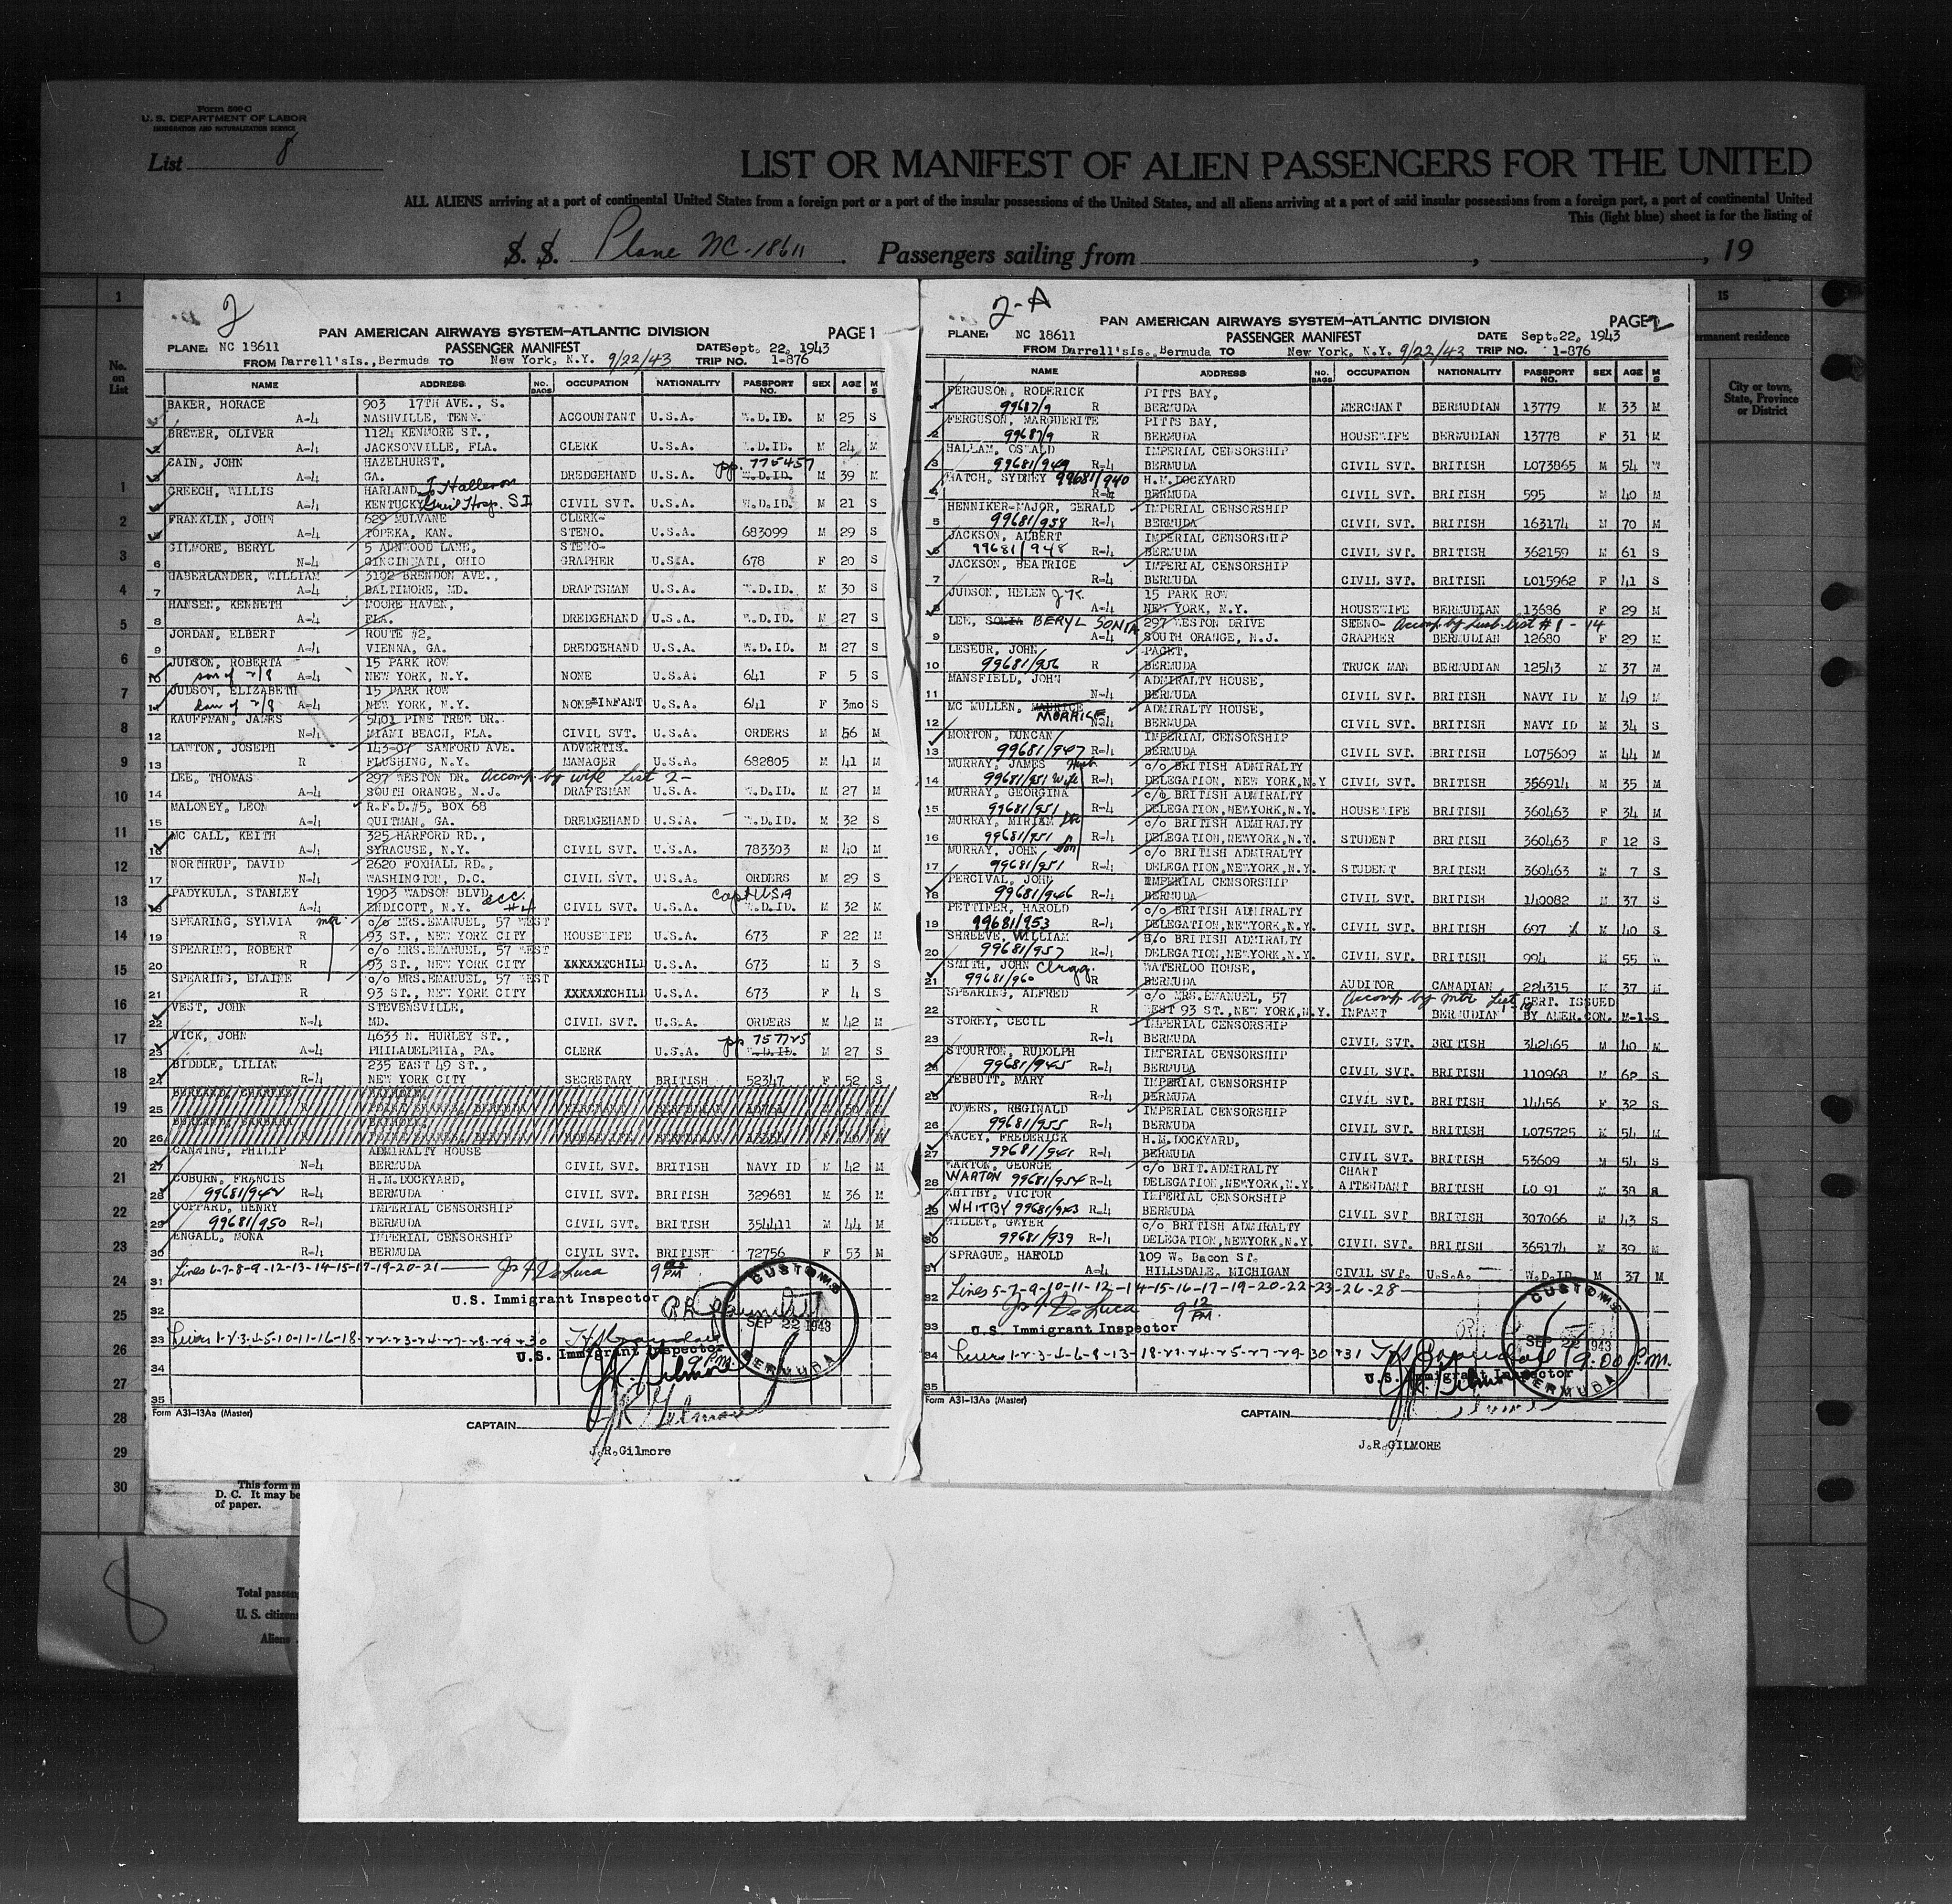 Form 500-C
U. S. DEPARTMENT OF LABOR
IMMIGRATION AND NATURALIZATION SERVICE
List 8
LIST OR MANIFEST OF ALIEN PASSENGERS FOR THE UNITED
ALL ALIENS arriving at a port of continental United States from a foreign port or a port of the insular possessions of the United States, and all aliens arriving at a port of said insular possessions from a foreign port, a port of continental United
This (light blue) sheet is for the listing of
S. S. Plane NC-18611. Passengers sailing from , , 19
2
PAN AMERICAN AIRWAYS SYSTEM—ATLANTIC DIVISION PAGE 1
PLANE: NC 18611 PASSENGER MANIFEST DATE Sept. 22, 1943
FROM Darrell'sIs., Bermuda TO New York, N.Y. 9/22/43 TRIP NO. 1-876
NAME ADDRESS NO. BAGS OCCUPATION NATIONALITY PASSPORT NO. SEX AGE M S
BAKER, HORACE 903 17TH AVE., S.
1 A-4 NASHVILLE, TENN. ACCOUNTANT U.S.A. W.D.ID. M 25 S
BREWER, OLIVER 1124 KENMORE ST.,
2 A-4 JACKSONVILLE, FLA. CLERK U.S.A. W.D.ID. M 24 M
CAIN, JOHN HAZELHURST, pp. 775457
3 A-4 GA. DREDGEHAND U.S.A. W.D.ID. M 39 M
CREECH, WILLIS HARLAND To Halloran
4 A-4 KENTUCKY Genl Hosp. SI CIVIL SVT. U.S.A. W.D.ID. M 21 S
FRANKLIN, JOHN 629 MULVANE CLERK-
5 A-4 TOPEKA, KAN. STENO. U.S.A. 683099 M 29 S
GILMORE, BERYL 5 ANNWOOD LANE, STENO-
6 N-4 CINCINNATI, OHIO GRAPHER U.S.A. 678 F 20 S
HABERLANDER, WILLIAM 3192 BRENDON AVE.,
7 A-4 BALTIMORE, MD. DRAFTSMAN U.S.A. W.D.ID. M 30 S
HANSEN, KENNETH MOORE HAVEN,
8 A-4 FLA. DREDGEHAND U.S.A. W.D.ID. M 27 S
JORDAN, ELBERT ROUTE #2,
9 A-4 VIENNA, GA. DREDGEHAND U.S.A. W.D.ID. M 27 S
JUDSON, ROBERTA 15 PARK ROW
10 A-4 NEW YORK, N.Y. NONE U.S.A. 641 F 5 S
JUDSON, ELIZABETH 15 PARK ROW
11 dau of 2/8 A-4 NEW YORK, N.Y. NONE-INFANT U.S.A. 641 F 3mo S
KAUFFMAN, JAMES 5401 PINE TREE DR.
12 N-4 MIAMI BEACH, FLA. CIVIL SVT. U.S.A. ORDERS M 56 M
LAWTON, JOSEPH 143-07 SANFORD AVE. ADVERTIS.
13 R FLUSHING, N.Y. MANAGER U.S.A. 682805 M 41 M
LEE, THOMAS 297 WESTON DR. Accomp by wife List 2-
14 A-4 SOUTH ORANGE, N.J. DRAFTSMAN U.S.A. W.D.ID. M 27 M
MALONEY, LEON R.F.D.#5, BOX 68
15 A-4 QUITMAN, GA. DREDGEHAND U.S.A. W.D.ID. M 32 S
MC CALL, KEITH 325 HARFORD RD.,
16 A-4 SYRACUSE, N.Y. CIVIL SVT. U.S.A. 783303 M 40 M
NORTHRUP, DAVID 2620 FOXHALL RD.,
17 N-4 WASHINGTON, D.C. CIVIL SVT. U.S.A. ORDERS M 29 S
PADYKULA, STANLEY 1903 WADSON BLVD. Capt USA
18 A-4 ENDICOTT, N.Y. acc. #4 CIVIL SVT. U.S.A. W.D.ID. M 32 M
SPEARING, SYLVIA mr. c/o MRS.EMANUEL, 57 WEST
19 R 93 ST., NEW YORK CITY HOUSEWIFE U.S.A. 673 F 22 M
SPEARING, ROBERT c/o MRS.EMANUEL, 57 WEST
20 R 93 ST., NEW YORK CITY XXXXXXCHILD U.S.A. 673 M 3 S
SPEARING, ELAINE c/o MRS.EMANUEL, 57 WEST
21 R 93 ST., NEW YORK CITY XXXXXXCHILD U.S.A. 673 F 4 S
VEST, JOHN STEVENSVILLE,
22 N-4 MD. CIVIL SVT. U.S.A. ORDERS M 42 M
VICK, JOHN 4633 N. HURLEY ST., pp 757725
23 A-4 PHILADELPHIA, PA. CLERK U.S.A. W.D.ID. M 27 S
BIDDLE, LILIAN 235 EAST 49 ST.,
24 R-4 NEW YORK CITY SECRETARY BRITISH 52347 F 52 S
BURLAND, CHARLES
25 R POINT SHARES, BERMUDA MERCHANT BERMUDIAN M 50 M
BURLAND, BARBARA
26 R POINT SHARES, BERMUDA HOUSEWIFE BERMUDIAN F 40 M
CANNING, PHILIP ADMIRALTY HOUSE
27 N-4 BERMUDA CIVIL SVT. BRITISH NAVY ID M 42 M
COBURN, FRANCIS H.M.DOCKYARD,
28 99681/942 R-4 BERMUDA CIVIL SVT. BRITISH 329681 M 36 M
COPPARD, HENRY IMPERIAL CENSORSHIP
29 99681/950 R-4 BERMUDA CIVIL SVT. BRITISH 354411 M 44 M
ENGALL, MONA IMPERIAL CENSORSHIP
30 R-4 BERMUDA CIVIL SVT. BRITISH 72756 F 53 M
31 Lines 6-7-8-9-12-13-14-15-17-19-20-21 Jos J DeLuca 9 05 PM
U.S. Immigrant Inspector
32
33 Lines 1-2-3-4-5-10-11-16-18-22-23-24-27-28-29+30
U.S. Immigrant Inspector
34 9 P.M.
35
CUSTOMS SEP 22 1943 BERMUDA
Form A31-13Aa (Master)
CAPTAIN JR Gilmore
J.R.Gilmore
2-A
PAN AMERICAN AIRWAYS SYSTEM—ATLANTIC DIVISION PAGE 2
PLANE: NC 18611 PASSENGER MANIFEST DATE Sept.22, 1943
FROM Darrell'sIs., Bermuda TO New York, N.Y. 9/22/43 TRIP NO. 1-876
NAME ADDRESS NO. BAGS OCCUPATION NATIONALITY PASSPORT NO. SEX AGE M S
FERGUSON, RODERICK PITTS BAY,
1 99687/9 R BERMUDA MERCHANT BERMUDIAN 13779 M 33 M
FERGUSON, MARGUERITE PITTS BAY,
2 99687/9 R BERMUDA HOUSEWIFE BERMUDIAN 13778 F 31 M
HALLAM, OSWALD IMPERIAL CENSORSHIP
3 99681/949 R-4 BERMUDA CIVIL SVT. BRITISH L073865 M 54 W
HATCH, SYDNEY 99681/940 H.M.DOCKYARD
4 R-4 BERMUDA CIVIL SVT. BRITISH 595 M 40 M
HENNIKER-MAJOR, GERALD IMPERIAL CENSORSHIP
5 99681/958 R-4 BERMUDA CIVIL SVT. BRITISH 163174 M 70 M
JACKSON, ALBERT IMPERIAL CENSORSHIP
6 99681/948 R-4 BERMUDA CIVIL SVT. BRITISH 362159 M 61 S
JACKSON, BEATRICE IMPERIAL CENSORSHIP
7 R-4 BERMUDA CIVIL SVT. BRITISH L015962 F 41 S
JUDSON, HELEN J.K. 15 PARK ROW
8 A-4 NEW YORK, N.Y. HOUSEWIFE BERMUDIAN 13686 F 29 M
LEE, SONIA BERYL SONIA 297 WESTON DRIVE STENO- Accomp by husb. list #1 - 14
9 A-4 SOUTH ORANGE, N.J. GRAPHER BERMUDIAN 12680 F 29 M
LESEUR, JOHN PAGET,
10 99681/956 R BERMUDA TRUCK MAN BERMUDIAN 12543 M 37 M
MANSFIELD, JOHN ADMIRALTY HOUSE,
11 N-4 BERMUDA CIVIL SVT. BRITISH NAVY ID M 49 M
MC MULLEN, MAURICE ADMIRALTY HOUSE,
12 MORRICE N-4 BERMUDA CIVIL SVT. BRITISH NAVY ID M 34 S
MORTON, DUNCAN IMPERIAL CENSORSHIP
13 99681/947 R-4 BERMUDA CIVIL SVT. BRITISH L075609 M 44 M
MURRAY, JAMES Husb c/o BRITISH ADMIRALTY
14 99681/951 Wife R-4 DELEGATION, NEW YORK,N.Y CIVIL SVT. BRITISH 356914 M 35 M
MURRAY, GEORGINA c/o BRITISH ADMIRALTY
15 99681/951 R-4 DELEGATION,NEWYORK,N.Y. HOUSEWIFE BRITISH 360463 F 34 M
MURRAY, MIRIAM c/o BRITISH ADMIRALTY
16 99681/951 R-4 DELEGATION,NEWYORK,N.Y. STUDENT BRITISH 360463 F 12 S
MURRAY, JOHN son c/o BRITISH ADMIRALTY
17 99681/951 R-4 DELEGATION,NEWYORK,N.Y. STUDENT BRITISH 360463 M 7 S
PERCIVAL, JOHN IMPERIAL CENSORSHIP
18 99681/946 R-4 BERMUDA CIVIL SVT. BRITISH 140082 M 37 S
PETTIFER, HAROLD c/o BRITISH ADMIRALTY
19 99681/953 R-4 DELEGATION,NEWYORK,N.Y. CIVIL SVT. BRITISH 697 M 40 S
SHREEVE, WILLIAM c/o BRITISH ADMIRALTY
20 99681/957 R-4 DELEGATION,NEWYORK,N.Y. CIVIL SVT. BRITISH 994 M 55 W
SMITH, JOHN Clegg. WATERLOO HOUSE,
21 99681/960 R BERMUDA AUDITOR CANADIAN 224315 M 37 M
SPEARING, ALFRED c/o MRS.EMANUEL, 57 Accomp by mtr List 19 CERT. ISSUED
22 R WEST 93 ST.,NEW YORK,N.Y. INFANT BERMUDIAN BY AMER.CON. M-1-S
STOREY, CECIL IMPERIAL CENSORSHIP
23 R-4 BERMUDA CIVIL SVT. BRITISH 342465 M 40 M
STOURTON, RUDOLPH IMPERIAL CENSORSHIP
24 99681/945 R-4 BERMUDA CIVIL SVT. BRITISH 110968 M 62 S
TEBBUTT, MARY IMPERIAL CENSORSHIP
25 R-4 BERMUDA CIVIL SVT. BRITISH 14456 F 32 S
TOWERS, REGINALD IMPERIAL CENSORSHIP
26 99681/955 R-4 BERMUDA CIVIL SVT. BRITISH L075725 M 54 M
WACEY, FREDERICK H.M.DOCKYARD,
27 99681/941 R-4 BERMUDA CIVIL SVT. BRITISH 53609 M 54 S
WARTON, GEORGE c/o BRIT.ADMIRALTY CHART
28 WARTON 99681/954 R-4 DELEGATION,NEWYORK,N.Y. ATTENDANT BRITISH LO 91 M 38 S
WHITBY, VICTOR IMPERIAL CENSORSHIP
29 WHITBY 99681/943 R-4 BERMUDA CIVIL SVT BRITISH 307066 M 43 S
WILLEY, GWYER c/o BRITISH ADMIRALTY
30 99681/939 R-4 DELEGATION,NEWYORK,N.Y. CIVIL SVT. BRITISH 365174 M 39 M
SPRAGUE, HAROLD 109 W. Bacon ST.
31 A-4 HILLSDALE, MICHIGAN CIVIL SVT. U.S.A. W.D.ID M 37 M
32 Lines 5-7-9-10-11-12-14-15-16-17-19-20-22-23-26-28
Jos J DeLuca 9 12 PM
33 U.S. Immigrant Inspector
34 Lines 1-2-3-4-6-8-13-18-21-24-25-27-29-30+31 9:00 P.M.
U.S. Immigrant Inspector
35
CUSTOMS SEP 22 1943 BERMUDA
Form A31-13Aa (Master)
CAPTAIN
J.R.GILMORE
No. on List
1
1
2
3
4
5
6
7
8
9
10
11
12
13
14
15
16
17
18
19
20
21
22
23
24
25
26
27
28
29
30
15
rmanent residence
City or town, State, Province or District
This form m
D. C. It may be
of paper.
8
Total passen
U. S. citizens
Aliens